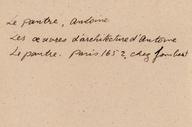 Le pautre, Antoine
Les œuvres d'architecture d'Antoine
Le pautre. Paris 1652, chez Jombert